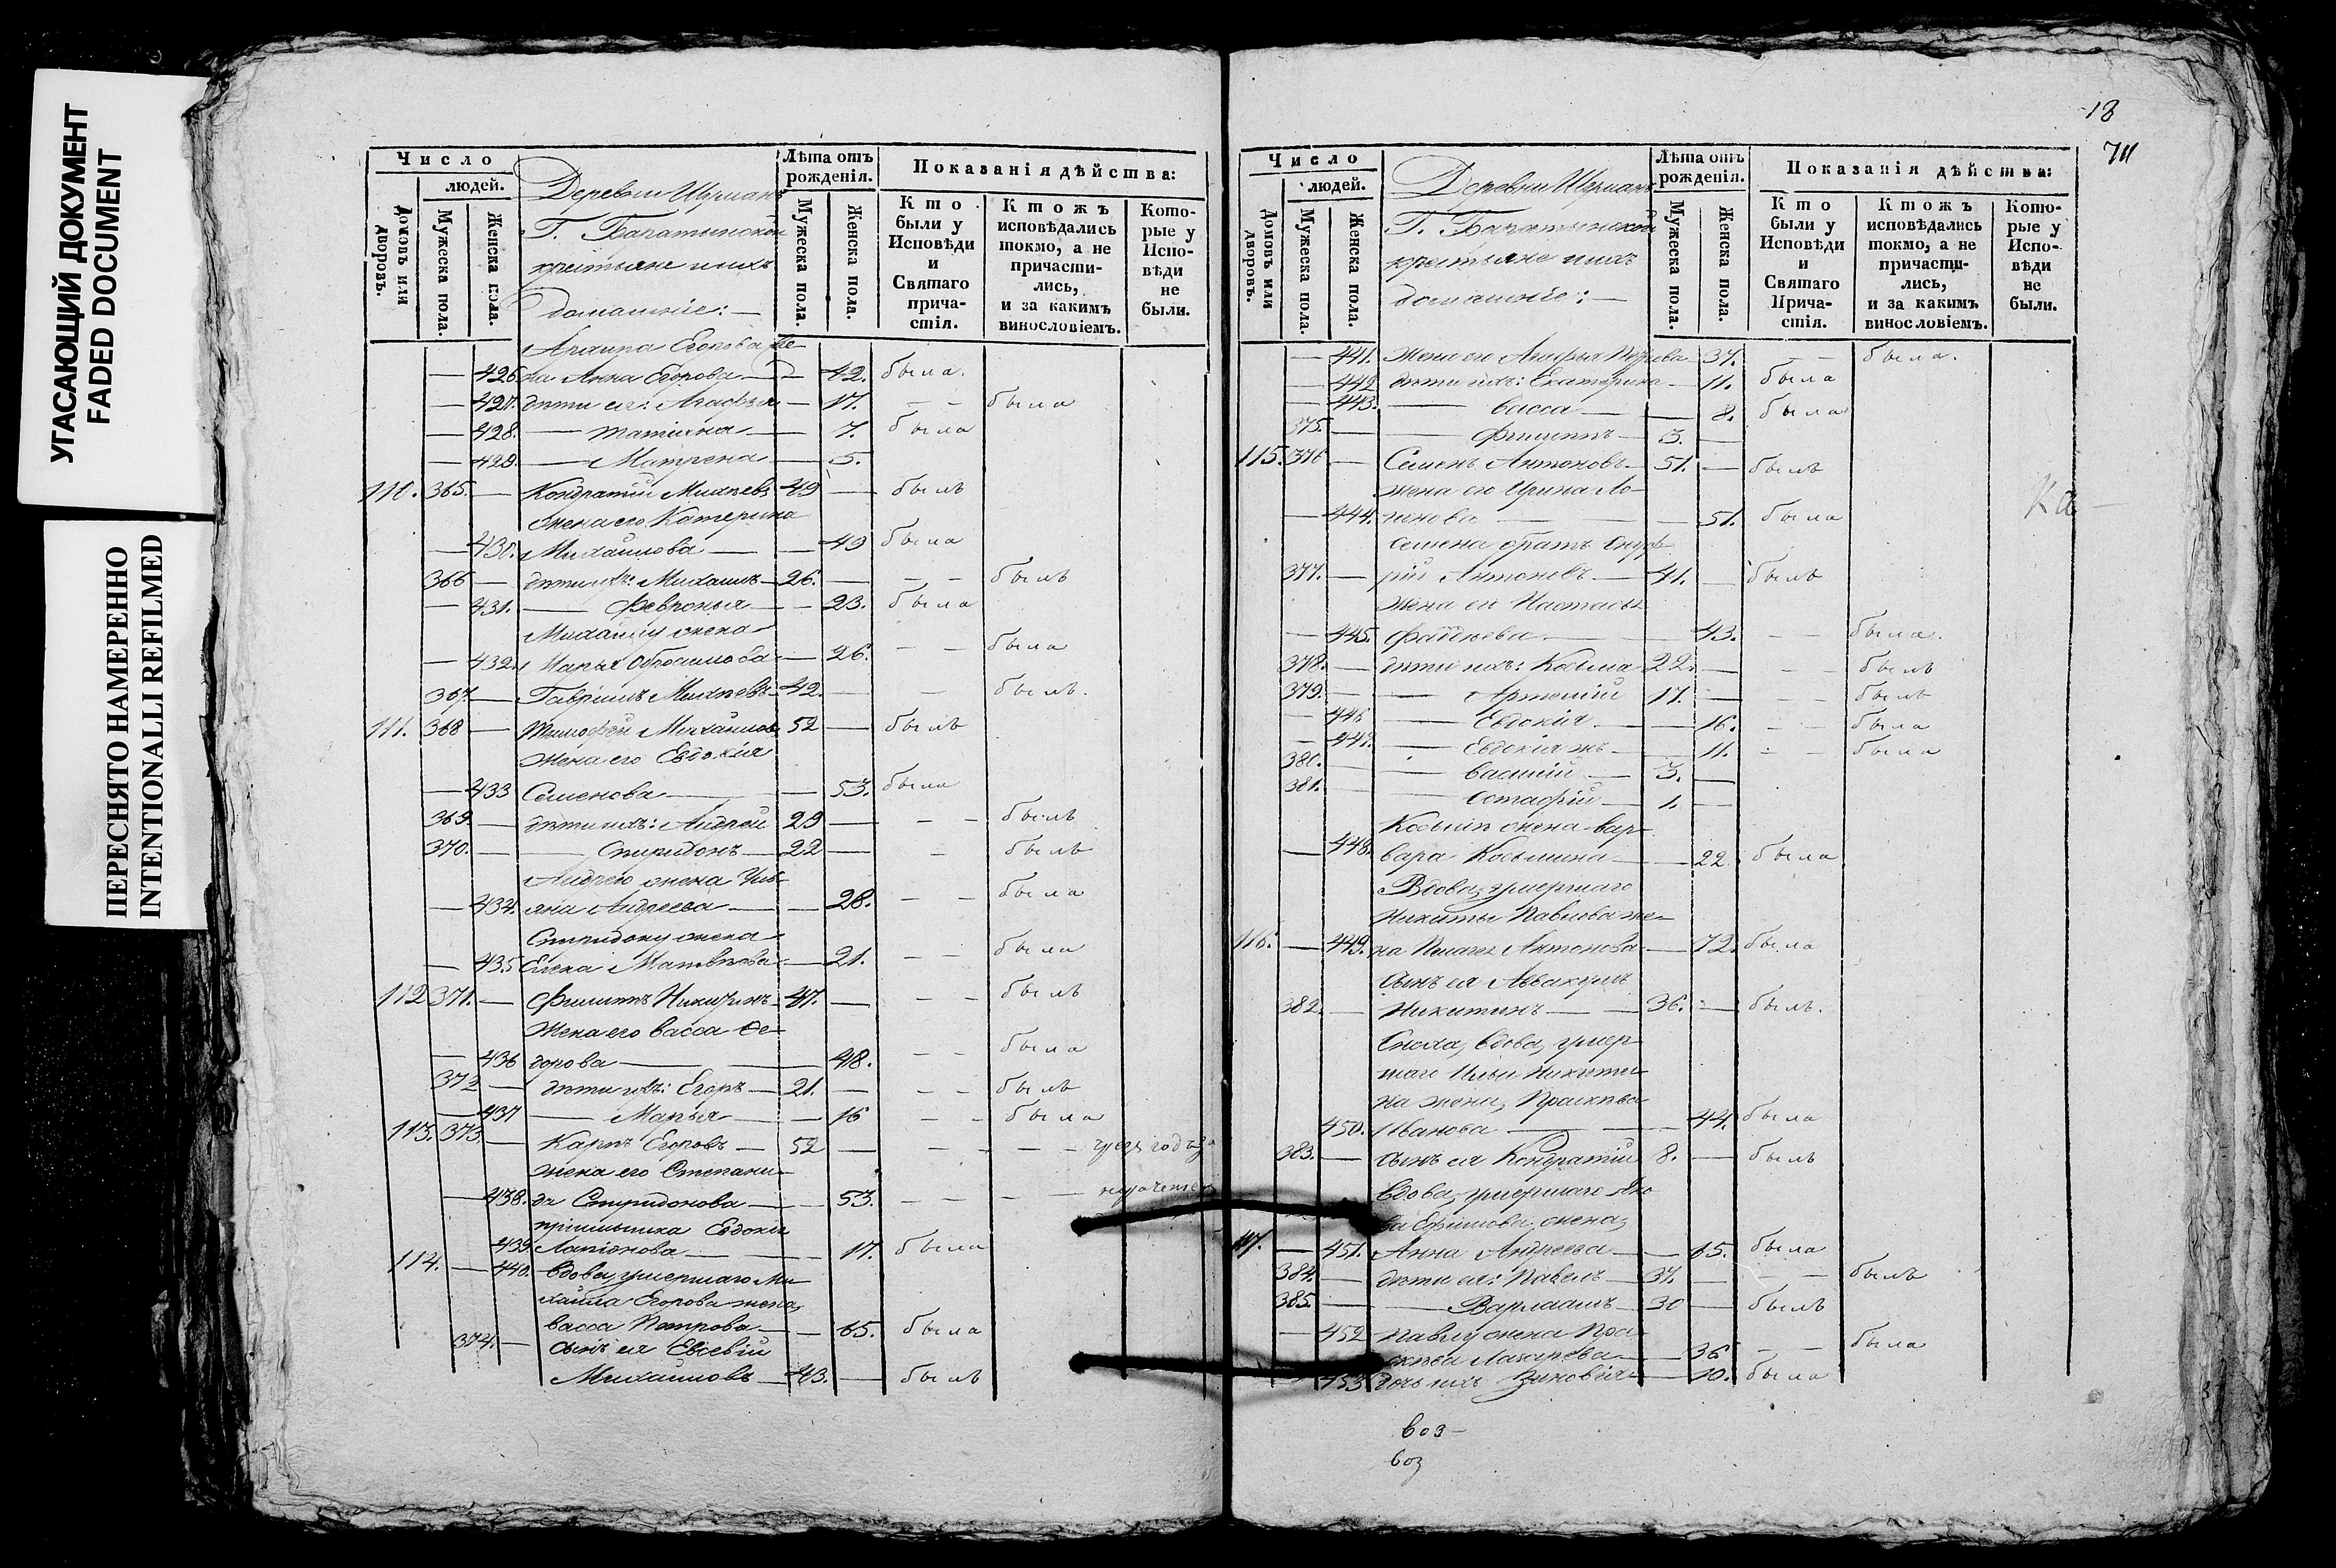 УГАСАЮЩИЙ ДОКУМЕНТ
FADED DOCUMENT
ПЕРЕСНЯТО НАМЕРЕННО
INTENTIONALLI REFILMED
Число
людей.
Домовъ или дворовъ.
Мужеска пола.
Женска пола.
Деревни
Г. Баратынской
крестьяне и ихъ
домашніе: —
Лѣта отъ рожденія.
Мужеска пола.
Женска пола.
Показанія дѣйства:
Кто были у Исповѣди и Святаго причастія.
Ктожъ исповѣдались токмо, а не причастились, и за какимъ винословіемъ.
Которые у Исповѣди не были.
Егорова же-
— 426 на Анна Егорова — 42. была.
— 427. дѣти ея: Агафья — 17. — — была
— 428. — Татіяна — 7. была
— 429. — Матрена — 5.
110. 365. — Кондратій Михѣевъ 49 — былъ
жена его Катерина
— 430. Михайлова — — 49 была
366 — дѣти ихъ: Михаилъ — 26. — — — былъ
— 431. — Февронья — — 23. была
Михайлу жена
— 432. Марья — 26. — — была
367. — Гавріилъ Михѣевъ — 42 — — былъ.
111. 368 — Тимофей Михайловъ 52 — былъ
жена его Евдокія
— 433 Семенова — — 53. была
369. — дѣти ихъ: Андрей 29 — — — былъ
370. — — Спиридонъ — 22 — — былъ
Андрею жена Уль-
— 434. яна Андреева — — 28. — — была
Спиридону жена
— 435 Елена Матвѣева — 21. — — была
112 371. — Филиппъ Никитинъ — 47. — — — былъ
Жена его Васса Ѳе-
— 436 дорова — — 48. — — была
372 — дѣти ихъ: Егоръ — 21. — — — былъ
— 437 — Марья — — 16 — — была
113. 373. — Карпъ Егоровъ — 52 — — — —
жена его Степани-
— 438. да Спиридонова — — 53. — — — —
пріимышка Евдокія
439. Ларіонова — — 17. была
114. — 440. вдова, умершаго Ми-
хаила Егорова жена,
Васса Петрова — — 65. была
374. — сынъ ея Евсевій
Михайловъ — 43. — былъ
18
Число
людей.
Домовъ или дворовъ.
Мужеска пола.
Женска пола.
Деревни
Г. Баратынской
крестьяне и ихъ
домашніе: —
Лѣта отъ рожденія.
Мужеска пола.
Женска пола.
Показанія дѣйства:
Кто были у Исповѣди и Святаго Причастія.
Ктожъ исповѣдались токмо, а не причастились, и за какимъ винословіемъ.
Которые у Исповѣди не были.
— 441. жена его Агафья Петрова — 37. — — была.
— 442 дѣти ихъ: Екатерина — 11. была
— 443. — Васса — — 8. была
375. — — Филиппъ — 3. —
115. 376 — Семенъ Антоновъ — 51. — былъ
жена его Ирина
— 444. — — — 51. была
Семена братъ
377. — рій Антоновъ — 41. — былъ
жена его Настасья
— 445. — — 43. — — была.
378. — дѣти ихъ: Косьма 22. — — — былъ
379. — — Артемій 17. — — — былъ
— 446 — Евдокія — — 16. — — была
— 447. — Евдокія жъ — 11. — — была
380. — — Василій — 3. —
381. — — Остафій — 1. —
Косьмы жена Вар-
— 448. вара Косьмина — — 22. была
Вдова, умершаго
Никиты Павлова же-
116. — 449. на Пелагея Антонова — 72. была
сынъ ея Аввакумъ
382. — Никитинъ — — 36. — былъ.
Сноха, вдова, умер-
шаго Ильи Никити-
на жена, Прасковья
450. Иванова — — 44. была
383. — сынъ ея Кондратій 8. — былъ
Вдова, умершаго Яко-
ва Ефимова, жена,
117. — 451. Анна Андреева — — 65. была
384. — дѣти ея: Павелъ — 37. — — — былъ
385. — — Варлаамъ — 30 — былъ
— 452 Павлу жена Пра-
сковья Лазарева — — 36 — — была
— 453 дочь ихъ Зиновія — 10. была
Ка —
воз —
воз